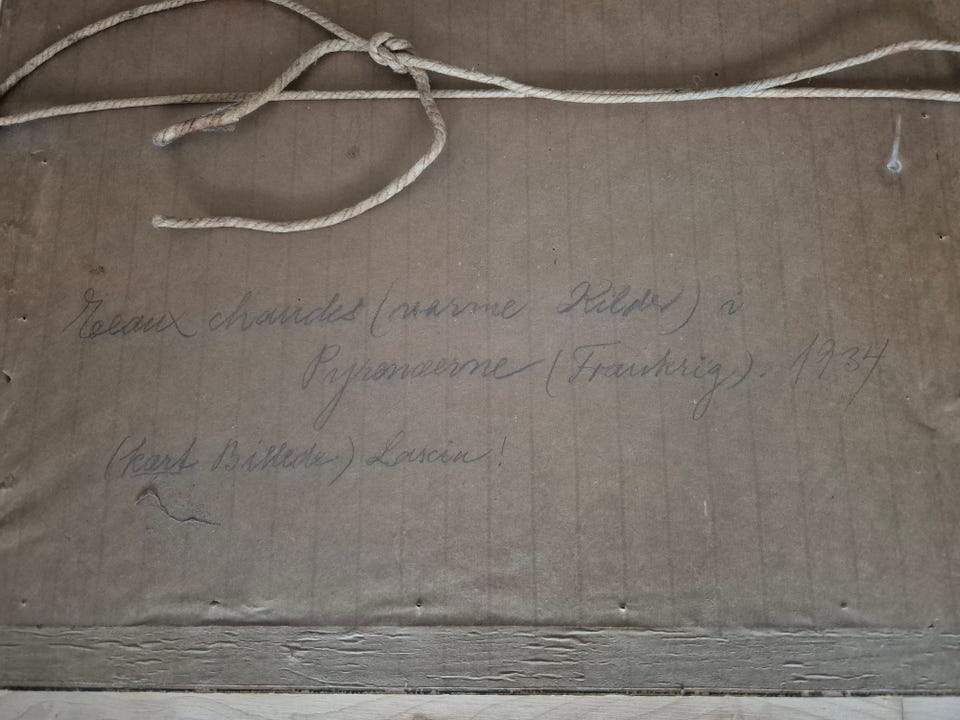 Eeaux chaudes (varme Kilder) i
Pyrenæerne (Frankrig). 1934
(kort Billede)